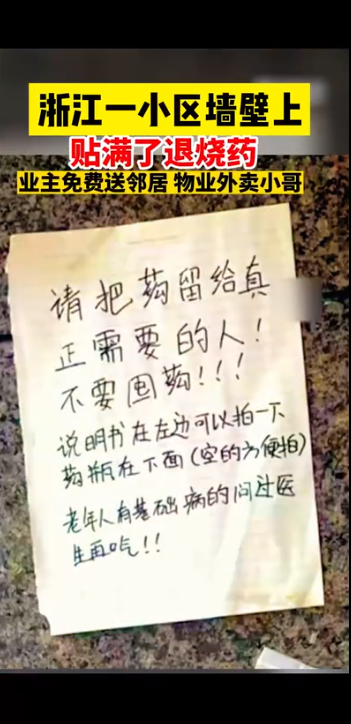 浙江一小区墙壁上
贴满了退烧药
业主免费送邻居 物业外卖小哥
请把药留给真
正需要的人!
不要囤药!!!
说明书在左边可以拍一下
药瓶在下面(空的方便拍)
老年人有基础病的问过医
生再吃!!